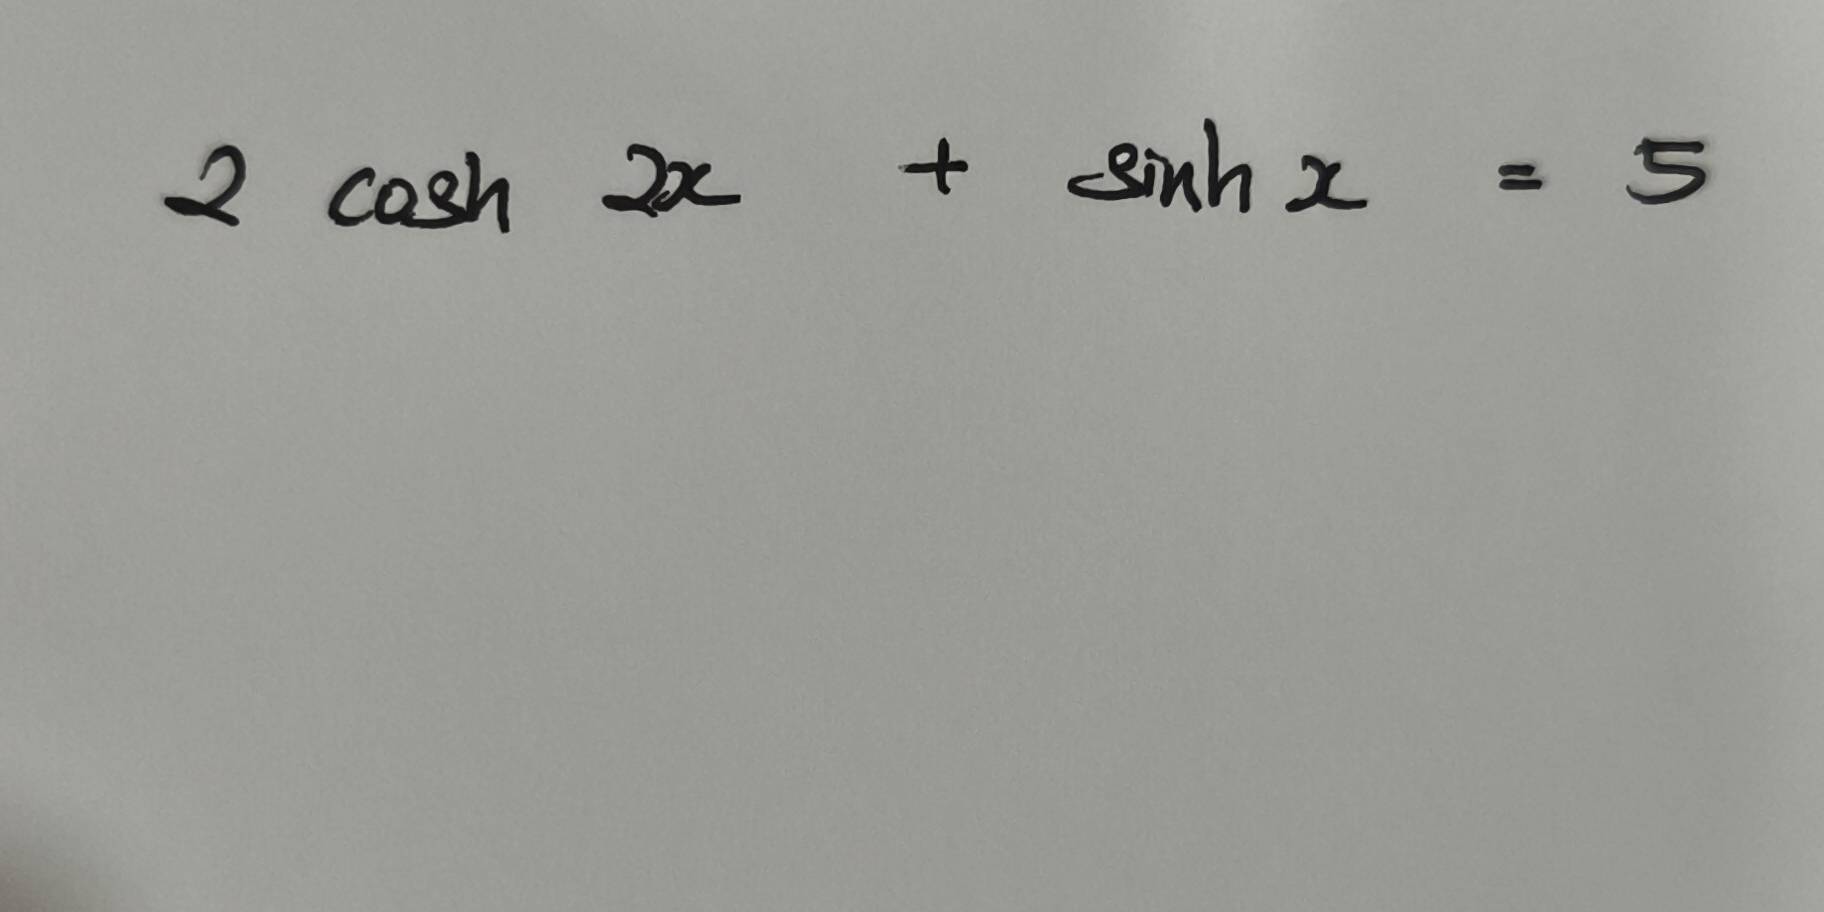 2 cosh 2x + sinh x = 5